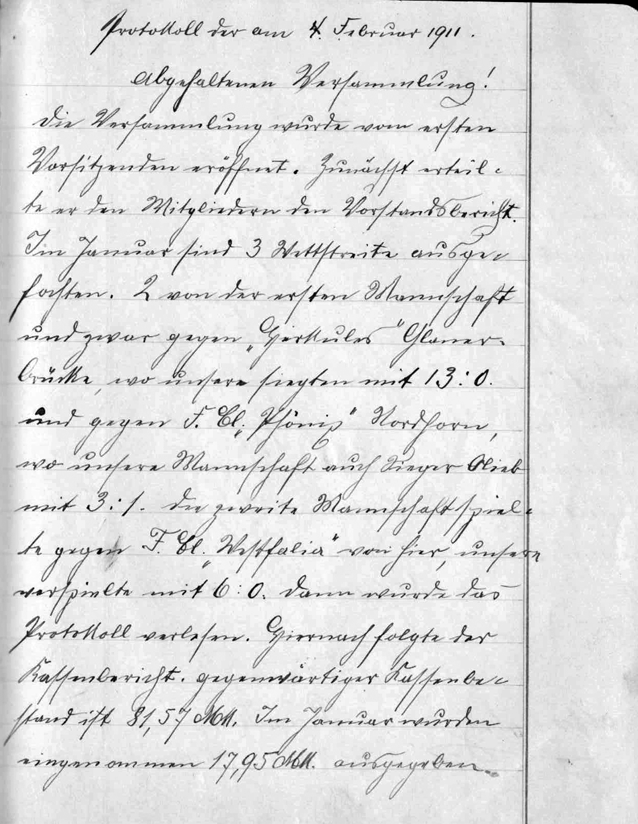 Protokoll der am 4. Februar 1911.
abgehaltenen Versammlung!
Die Versammlung wurde vom ersten
Vorsitzenden eröffnet. Zunächst erteil-
te er den Mitgliedern den Vorstandsbericht.
Im Januar sind 3 Wettstreite ausge-
fochten. 2 von der ersten Mannschaft
und zwar gegen "Herkules" Glaner-
brücke, wo unsere siegten mit 13:0.
und gegen F. Cl. "Phönix" Nordhorn,
wo unsere Mannschaft auch Sieger blieb
mit 3:1. die zweite Mannschaft spiel-
te gegen F. Cl. "Westfalia" von hier, unsere
verspielte mit 6:0. Dann wurde das
Protokoll verlesen. Hiernach folgte der
Kassenbericht. gegenwärtiger Kassenbe-
stand ist 81,57 Mk. Im Januar wurden
eingenommen 17,95 Mk. ausgegeben